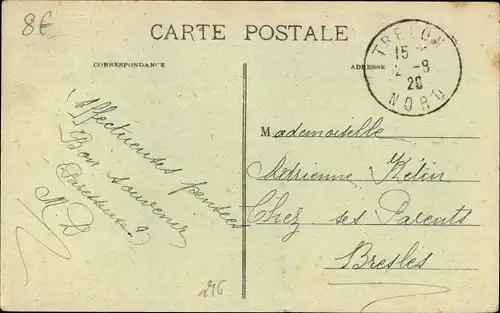 8€
CARTE POSTALE
CORRESPONDANCE
ADRESSE
TRELON
15
2-8
20
NORD
Affectueuses pensées
Bon souvenir
M D
Mademoiselle
Adrienne Kelin
Chez ses Parents
Bresles
246